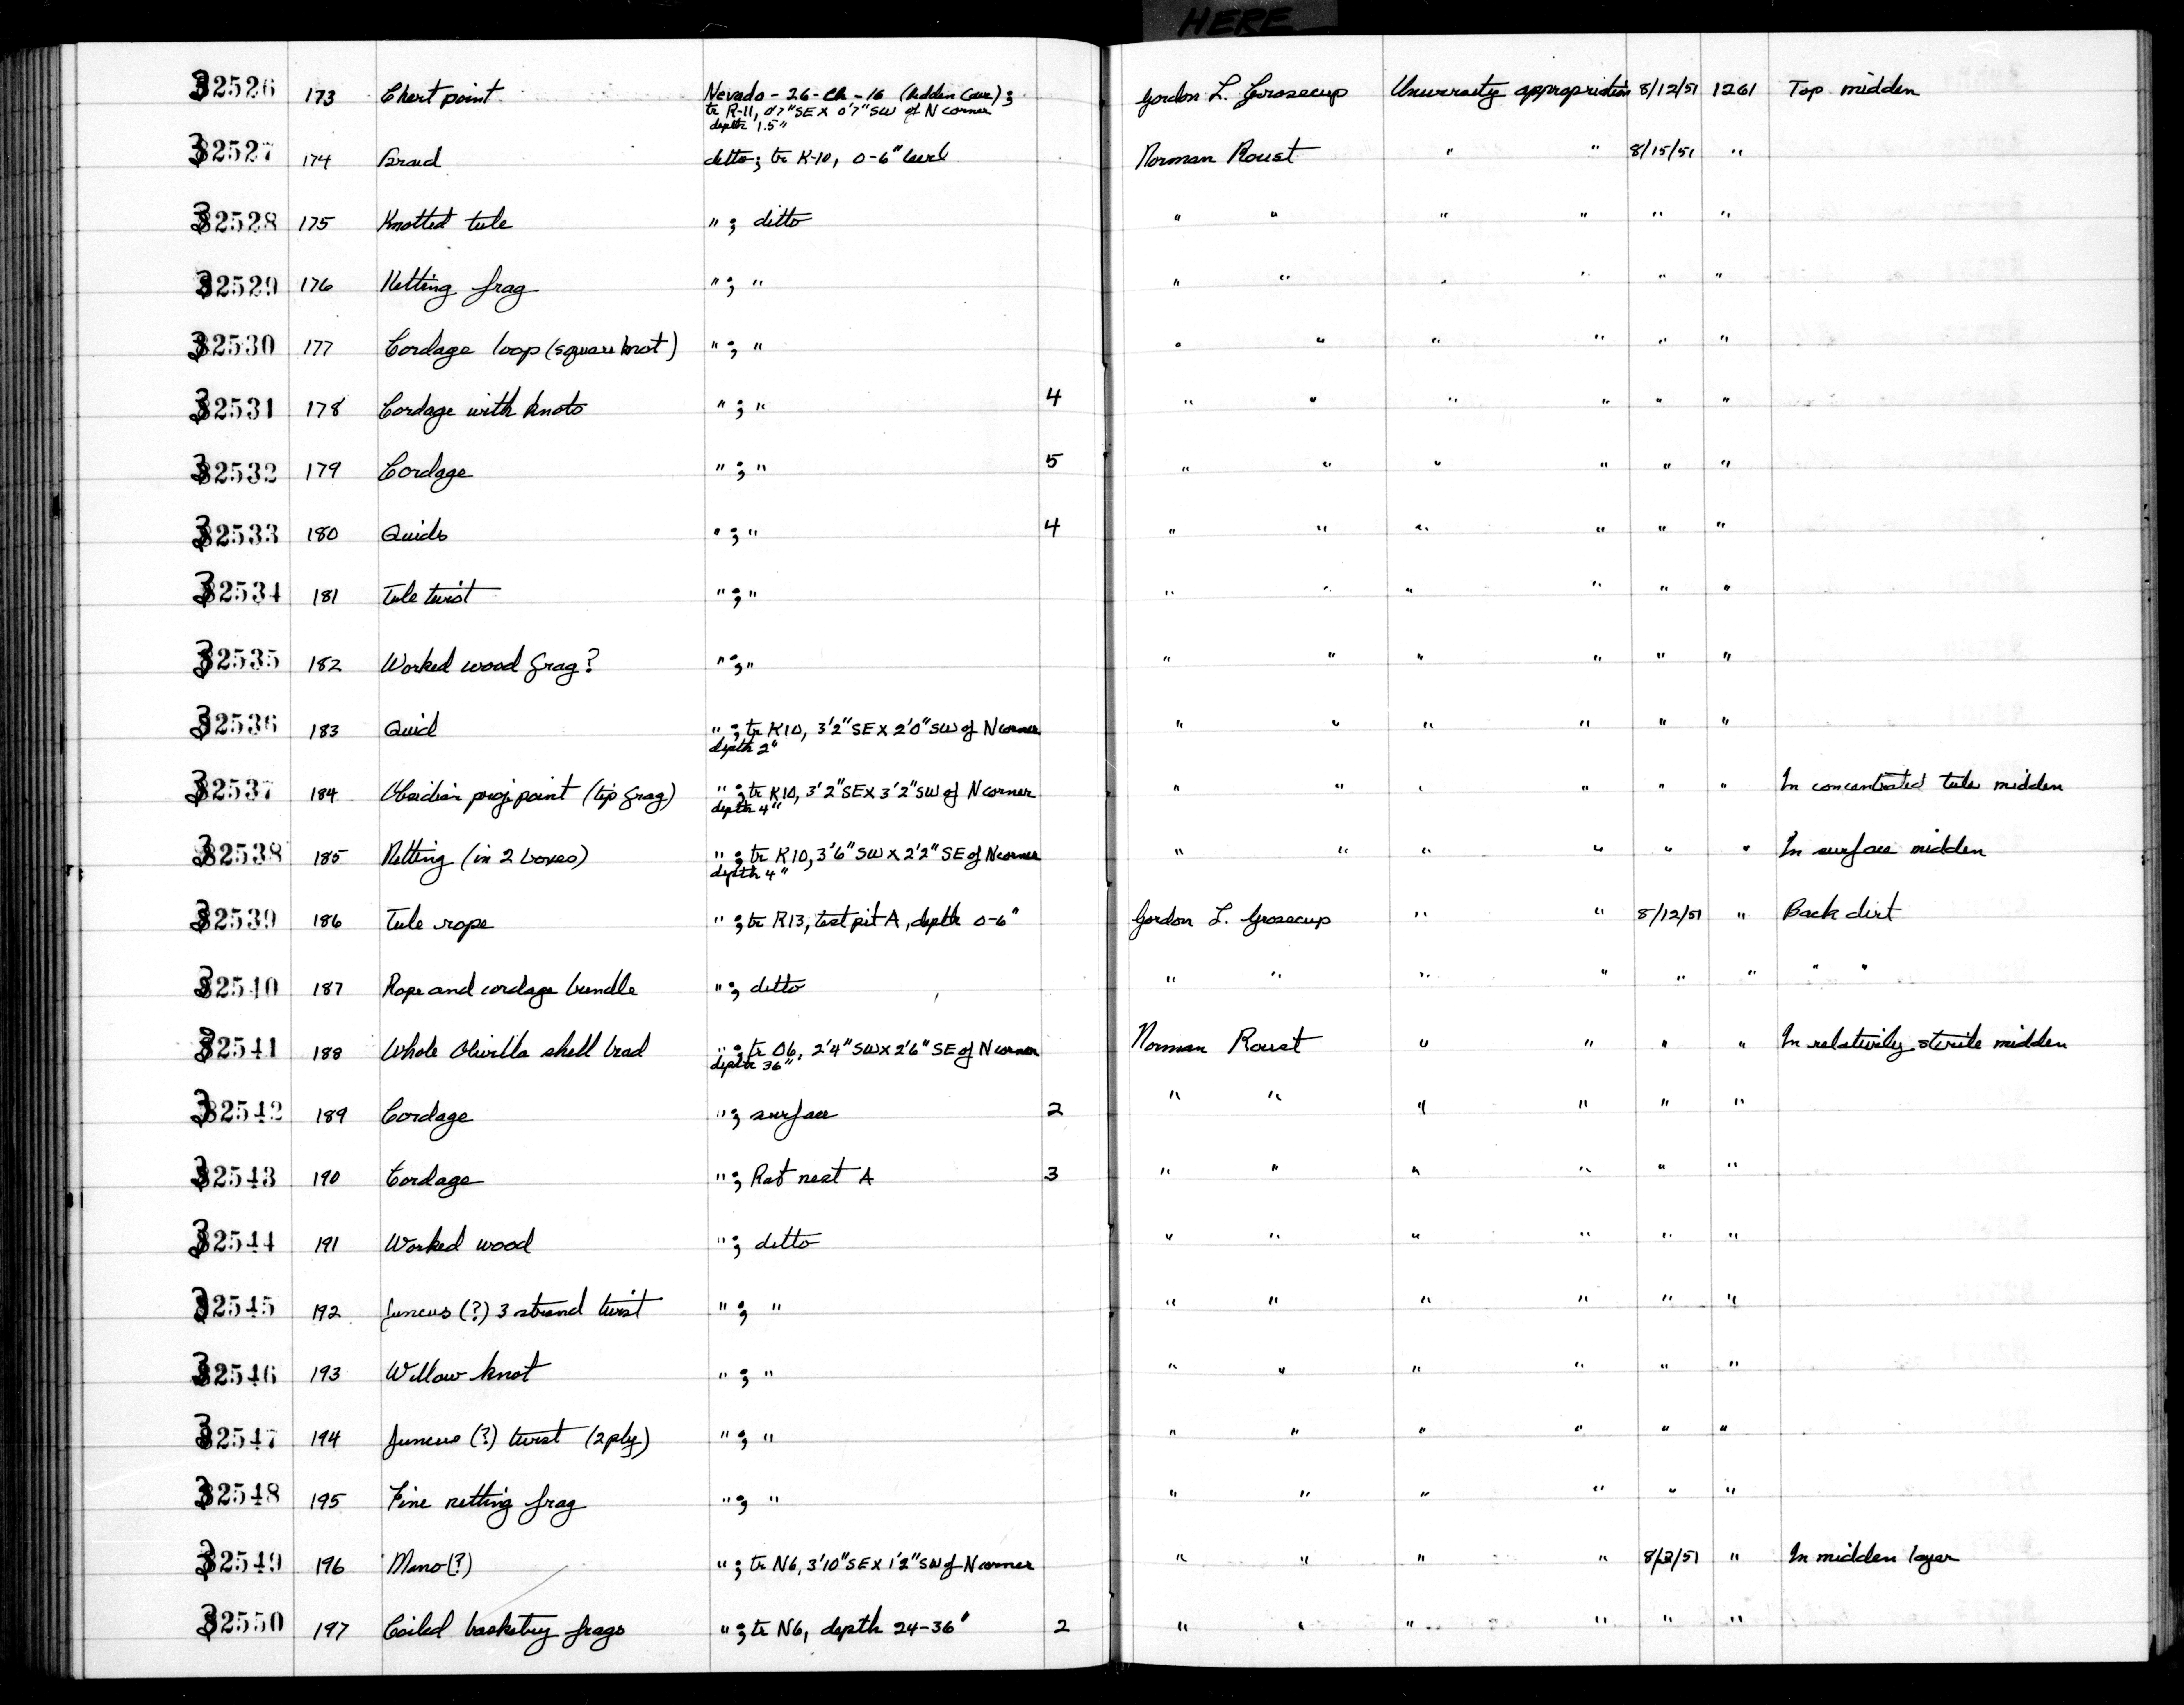 HERE
32526 173 Chert point Nevada - 26 - Ch - 16 (Hidden Cave); Gordon L. Grosscup University appropriation 8/12/51 1261 Top midden
tr R-11, 0'7" SE X 0'7" SW of N corner
depth 1.5"
32527 174 Braid ditto; tr K-10, 0-6" level Norman Roust " " 8/15/51 "
32528 175 Knotted tule "; ditto " " " " " "
32529 176 Netting frag "; " " " " " " "
32530 177 Cordage loop (square knot) "; " " " " " " "
32531 178 Cordage with knots "; " 4 " " " " " "
32532 179 Cordage "; " 5 " " " " " "
32533 180 Quids "; " 4 " " " " " "
32534 181 Tule twist "; " " " " " " "
32535 182 Worked wood frag? "; " " " " " " "
32536 183 Quid "; tr K10, 3'2" SE X 2'0" SW of N corner " " " " " "
depth 2"
32537 184 Obsidian proj point (tip frag) "; tr K10, 3'2" SE X 3'2" SW of N corner " " " " " " In concentrated tule midden
depth 4"
32538 185 Netting (in 2 boxes) "; tr K10, 3'6" SW X 2'2" SE of N corner " " " " " " In surface midden
depth 4"
32539 186 Tule rope "; tr R13, test pit A, depth 0-6" Gordon L. Grosscup " " 8/12/51 " Back dirt
32540 187 Rope and cordage bundle "; ditto " " " " " " " "
32541 188 Whole Olivella shell bead "; tr O6, 2'4" SW X 2'6" SE of N corner Norman Roust " " " " In relatively sterile midden
depth 36"
32542 189 Cordage "; surface 2 " " " " " "
32543 190 Cordage "; Rat nest A 3 " " " " " "
32544 191 Worked wood "; ditto " " " " " "
32545 192 Juncus (?) 3 strand twist "; " " " " " " "
32546 193 Willow knot "; " " " " " " "
32547 194 Juncus (?) twist (2 ply) "; " " " " " " "
32548 195 Fine netting frag "; " " " " " " "
32549 196 Mano (?) "; tr N6, 3'10" SE X 1'2" SW of N corner " " " " 8/2/51 " In midden layer
32550 197 Coiled basketry frags "; tr N6, depth 24-36" 2 " " " " " "